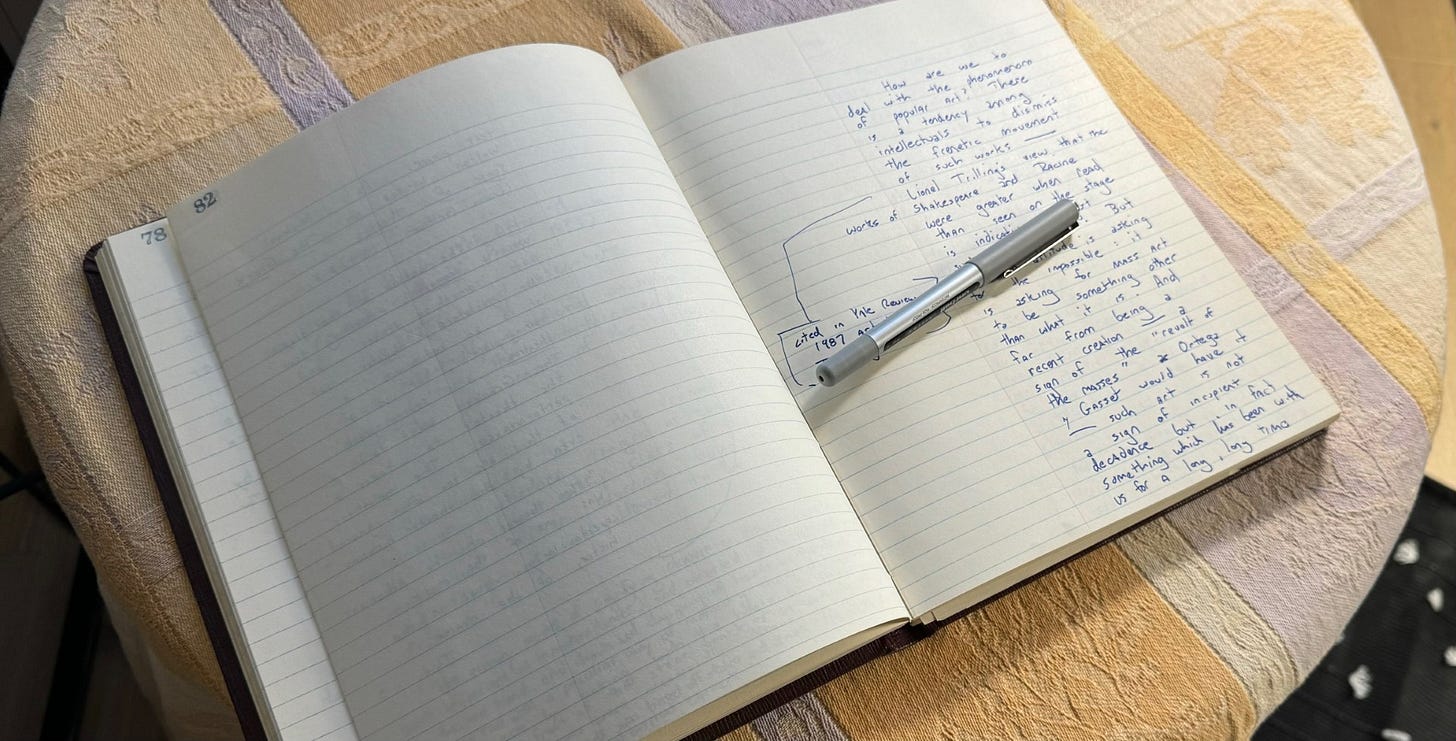 82
78
How are we to
deal with the phenomenon
of popular Art? There
is a tendency among
intellectuals to dismiss
the frenetic movement
of such works
Lionel Trilling's view that the
works of Shakespeare and Racine
were greater when read
than seen on the stage
is
But
is asking
the impossible: it
is asking for mass Art
to be something other
than what it is. And
far from being a
recent creation a
sign of the "revolt of
the masses" as Ortega
y Gasset would have it
such art is not
a sign of incipient
decadence but in fact
something which has been with
us for a long, long time
cited in Yale Review
1987